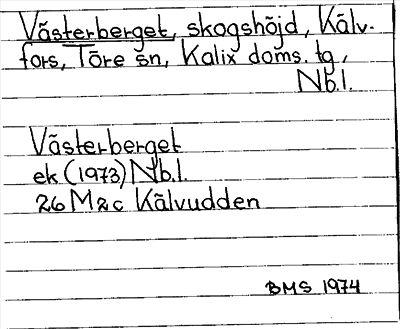 Västerberget, skogshöjd, Kälv-
fors, Töre sn, Kalix doms. tg,
Nb.l.
Västerberget
ek (1973) Nb.l.
26 M 2 c Kälvudden
BMS 1974